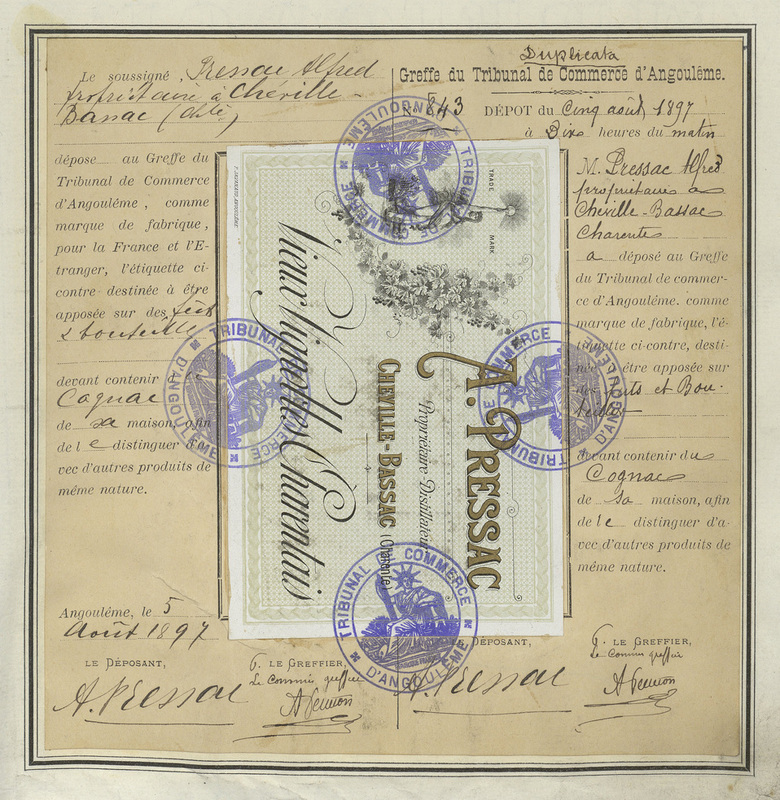 Le soussigné, Pressac Alfred
propriétaire à Cheville-
Bassac (Chte)
dépose au Greffe du
Tribunal de Commerce
d'Angoulême, comme
marque de fabrique,
pour la France et l'E-
tranger, l'étiquette ci-
contre destinée à être
apposée sur des fûts
& bouteilles
devant contenir
Cognac
de sa maison, afin
de le distinguer d'a-
vec d'autres produits de
même nature.
Angoulême, le 5
Août 1897
LE DÉPOSANT,
A. Pressac
LE GREFFIER,
Le Commis greffier
Duplicata
Greffe du Tribunal de Commerce d'Angoulême.
N° 843 DÉPOT du Cinq août 1897
à Dix heures du matin
M. Pressac Alfred
propriétaire à
Cheville-Bassac
Charente
a déposé au Greffe
du Tribunal de commer-
ce d'Angoulême. comme
marque de fabrique, l'é-
tiquette ci-contre, desti-
née être apposée sur
des fûts et Bou-
teilles
devant contenir du
Cognac
de sa maison, afin
de le distinguer d'a-
vec d'autres produits de
même nature.
LE DÉPOSANT,
A. Pressac
LE GREFFIER,
Le Commis greffier
TRADE MARK
Vieux Vignoble Charentais
A. PRESSAC
Propriétaire Distillateur
CHEVILLE-BASSAC (Charente)
TRIBUNAL DE COMMERCE
D'ANGOULÊME
TRIBUNAL DE COMMERCE
D'ANGOULÊME
TRIBUNAL DE COMMERCE
D'ANGOULÊME
TRIBUNAL DE COMMERCE
D'ANGOULÊME